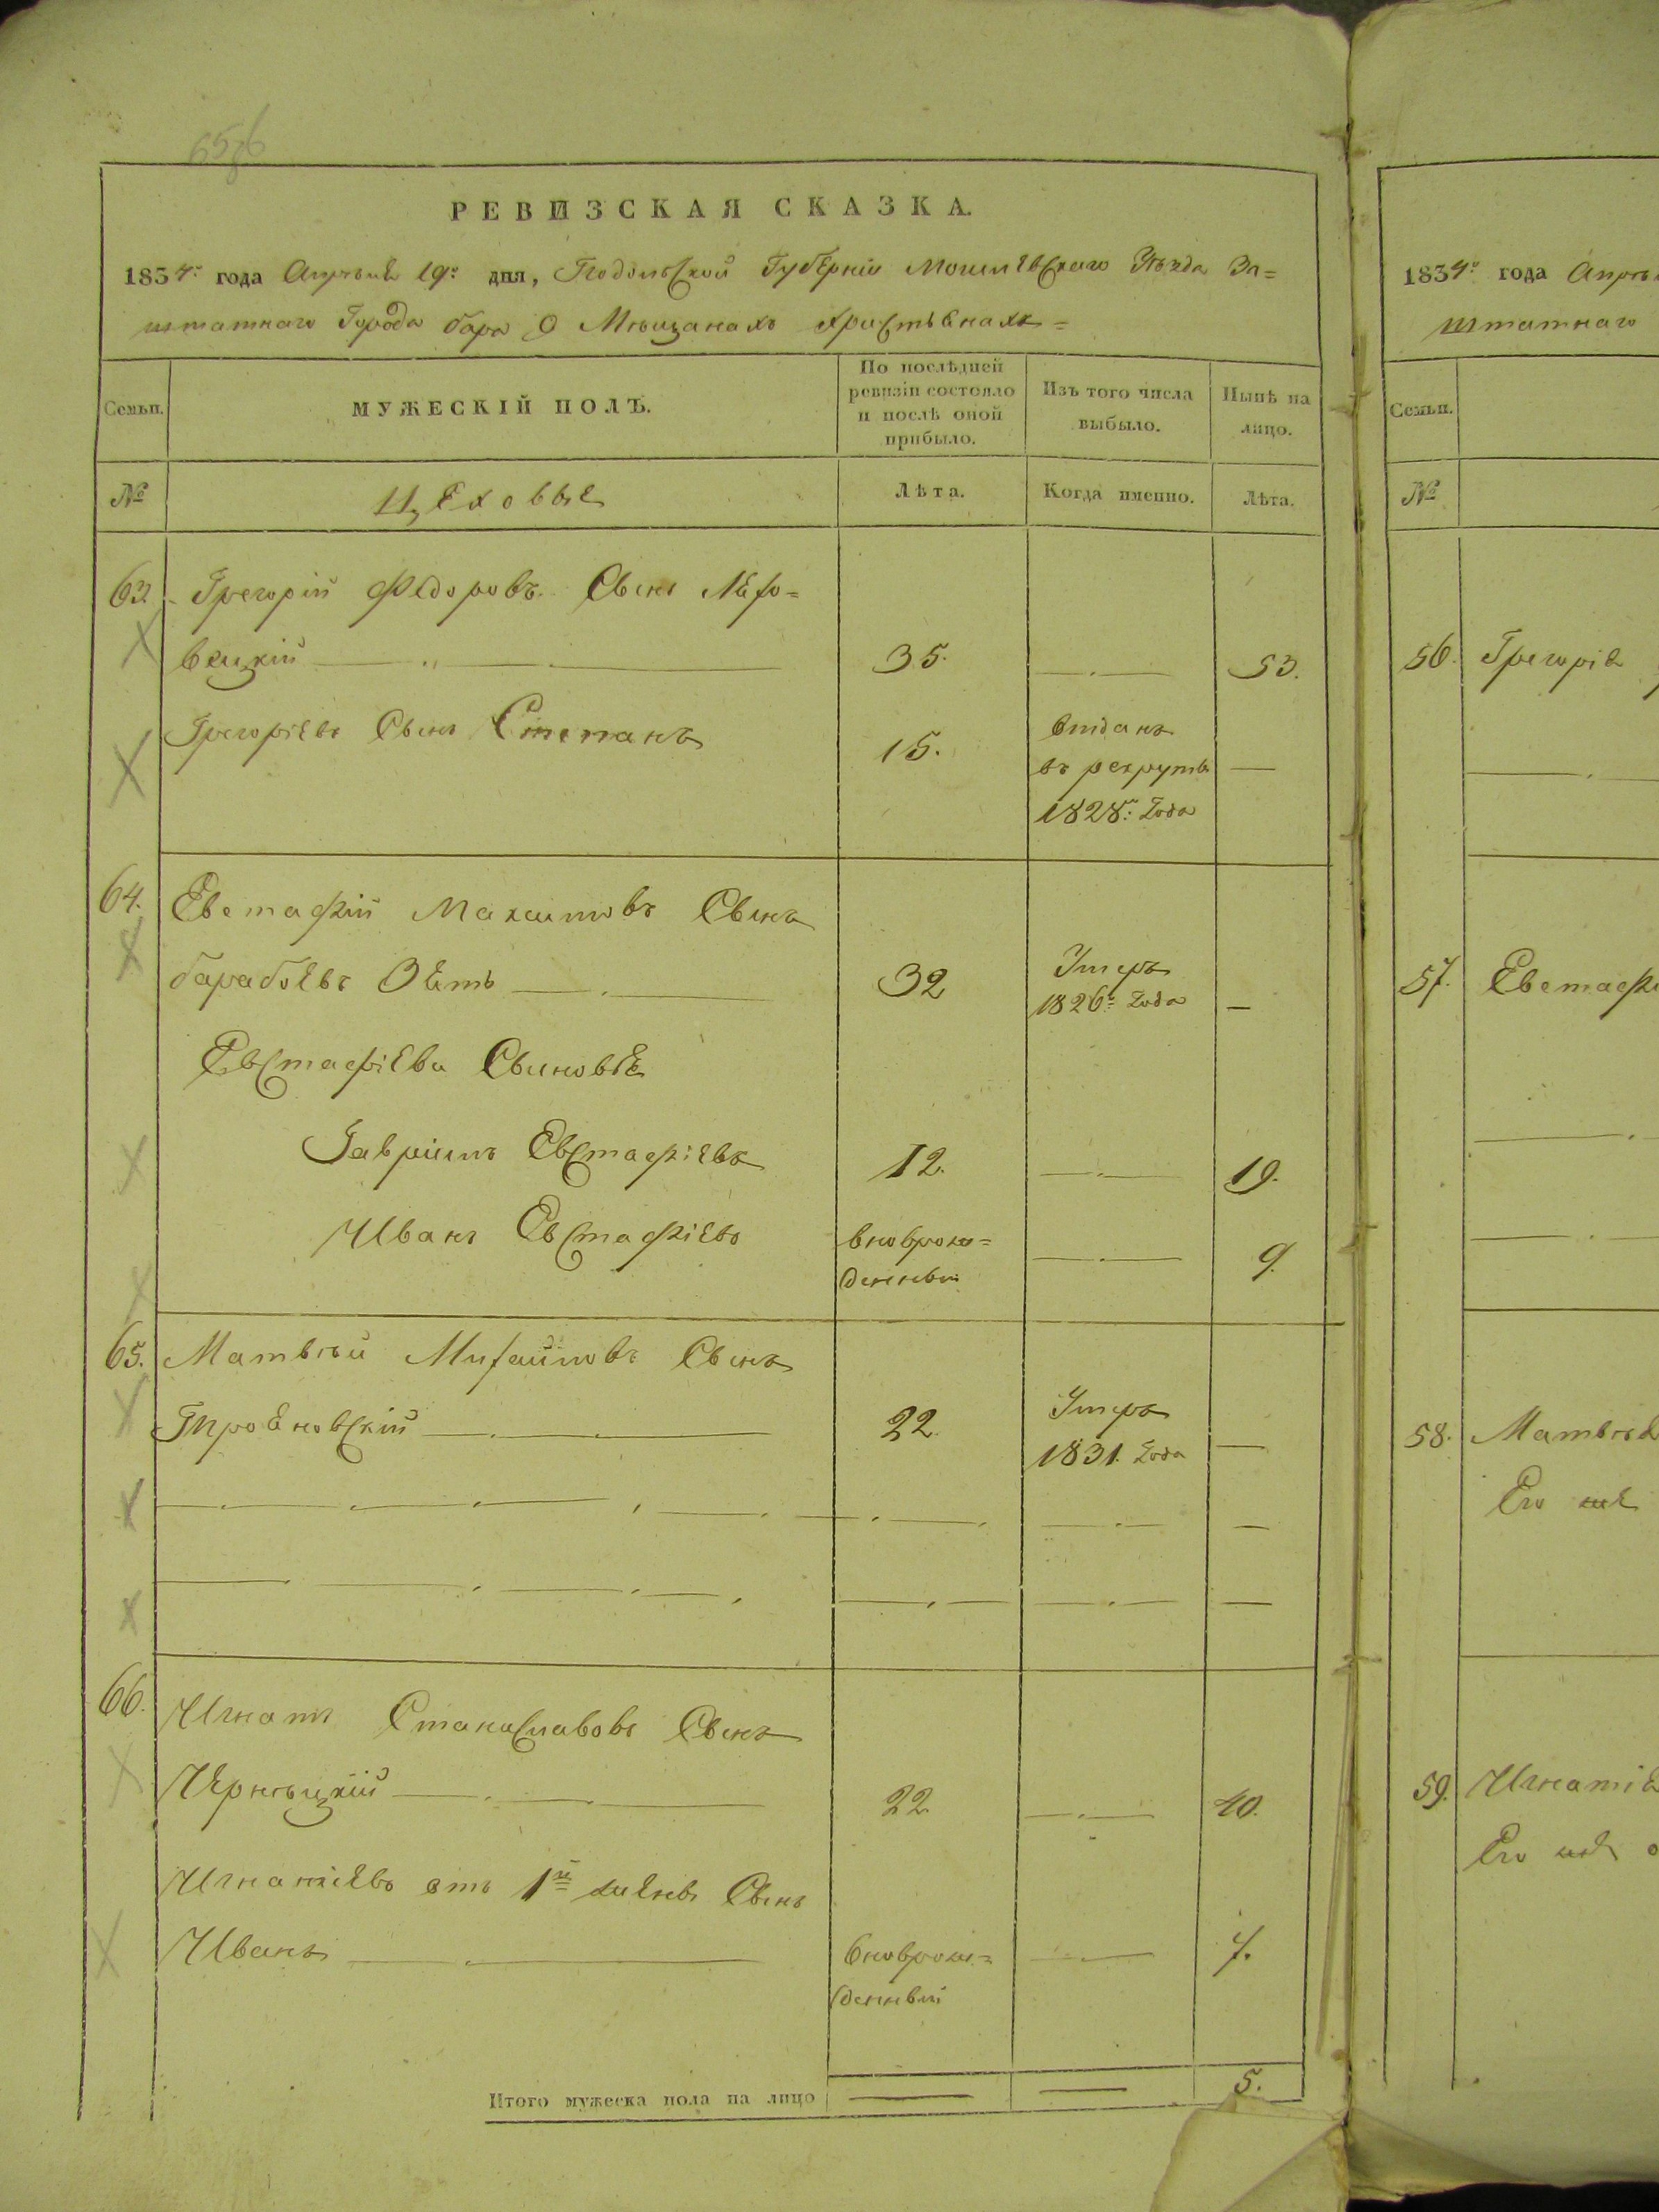 РЕВИЗСКАЯ СКАЗКА.
1834го года Апреля 19го дня, Подольской Губерніи Могилевскаго Уезда За=
штатнаго Города бара О Мещанахъ христьянахъ=
Семьи. МУЖЕСКІЙ ПОЛЪ. По послѣдней ревизіи состояло и послѣ оной прибыло. Изъ того числа выбыло. Нынѣ на лицо.
№ Цеховые Лѣта. Когда именно. Лѣта.
63. Грегорій Федоровъ Сынъ
вецкій 35. 53.
Грегоріевъ Сынъ Степанъ 15. Отданъ
въ рекруты
1828го Года
64. Евстафій Максимовъ Сынъ
барабаевъ Зеть 32 Умеръ
1826го Года
Евстафіеви Сыновъя
Гавріилъ Евстафіевъ 12. 19.
Иванъ Евстафіевъ вноврож=
денный 9.
65. Матвѣй Михайловъ Сынъ
Трояновскій 22. Умеръ
1831. Года
66. Игнатъ Станиславовъ Сынъ
Чернѣцкій 22 40.
Игнатіевъ отъ 1й жены Сынъ
Иванъ вноврож=
денный 7.
Итого мужеска пола на лицо 5.
1834го года
штатнаго
Семьи.
№
56. Грегорія
57.
58.
Его же
59. Игнатія
Его же